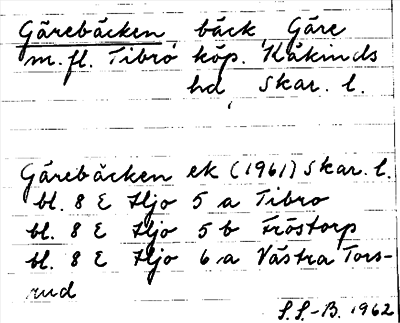 Gärebäcken, bäck, Gäre
m.fl. Tibro köp. Kåkinds
hd, Skar. l.
Gärebäcken ek (1961) Skar. l.
bl. 8 E Hjo 5 a Tibro
bl. 8 E Hjo 5 b Fröstorp
bl. 8 E Hjo 6 a Västra Tors-
rud
S.S-B. 1962